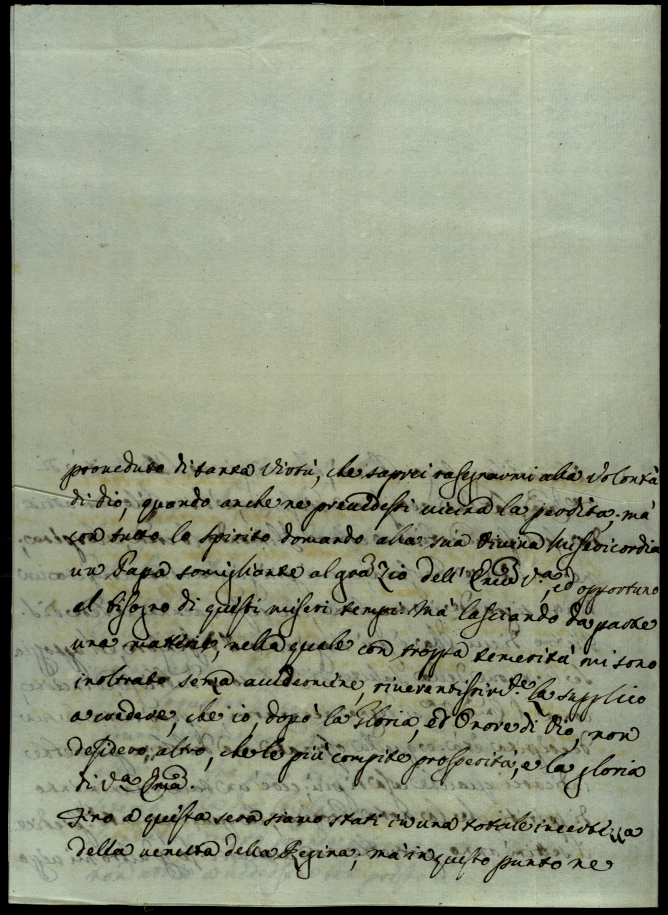 proveduto di tanta virtù, che saprei rasegnarmi alla volontà
di Dio, quando anche ne prevedessi vicina la perdita, mà
con tutto lo spirito domando alla sua divina Misericordia
un Papa somigliante al gra. Zio dell' Emza Va, ed opportuno
al bisogno di questi miseri tempi. Mà lasciando da parte
una materia, nella quale con troppa temerità mi sono
inoltrato senza avvedermene, riverentissimte la supplico
a credere, che io, dopò la Gloria, ed Onore di Dio, non
desidero altro, che le più compite prosperità, e la gloria
di Va Emza.
Fino a questa sera siamo stati in una totale incertezza
della venuta della Regina; mà in questo punto ne